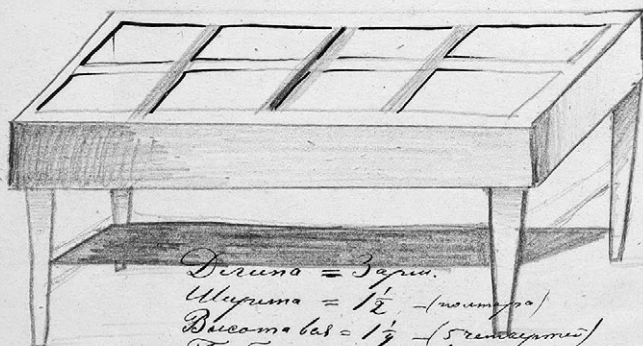 Длина = 3 арш.
Ширина = 1½ – (полтора)
Высота вся = 1¼ – (5 четвертей)